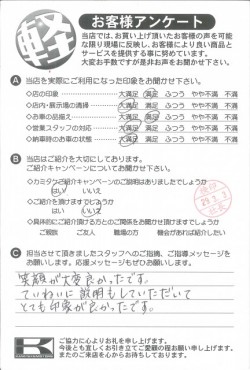 軽
お客様アンケート
当店では、お買い上げ頂いたお客様の声を可能
な限り現場に反映し、お客様により良い商品と
サービスを提供する事に努めています。
大変お手数ですが是非お声をお聞かせ下さい。
A 当店を実際にご利用になった印象をお聞かせ下さい。
◇店の印象 大満足 満足 ふつう やや不満 不満
◇店内・展示場の清掃 大満足 満足 ふつう やや不満 不満
◇お車の品揃え 大満足 満足 ふつう やや不満 不満
◇営業スタッフの対応 大満足 満足 ふつう やや不満 不満
◇納車時のお車の状態 大満足 満足 ふつう やや不満 不満
B 当店はご紹介を大切にしております。
ご紹介キャンペーンについてお聞かせ下さい
◇カミタケご紹介キャンペーンのご説明はありましたでしょうか
はい いいえ
◇ご紹介を頂けますでしょうか
はい いいえ
◇具体的にご紹介頂ける方とのご関係をお聞かせ下さい
ご親族 ご友人 職場の方 機会があれば紹介したい
C 担当させて頂きましたスタッフへのご指摘、ご指導メッセージを
お願いします。応援メッセージもぜひお願いします。
笑顔が大変良かったです。
ていねいに説明もしていただいて
とても印象が良かったです。
K
ご協力に心よりお礼を申し上げます。
今後とも宜しくお引き立てご愛顧の程お願い申し上げます。
またのご来店を心からお待ちしております。